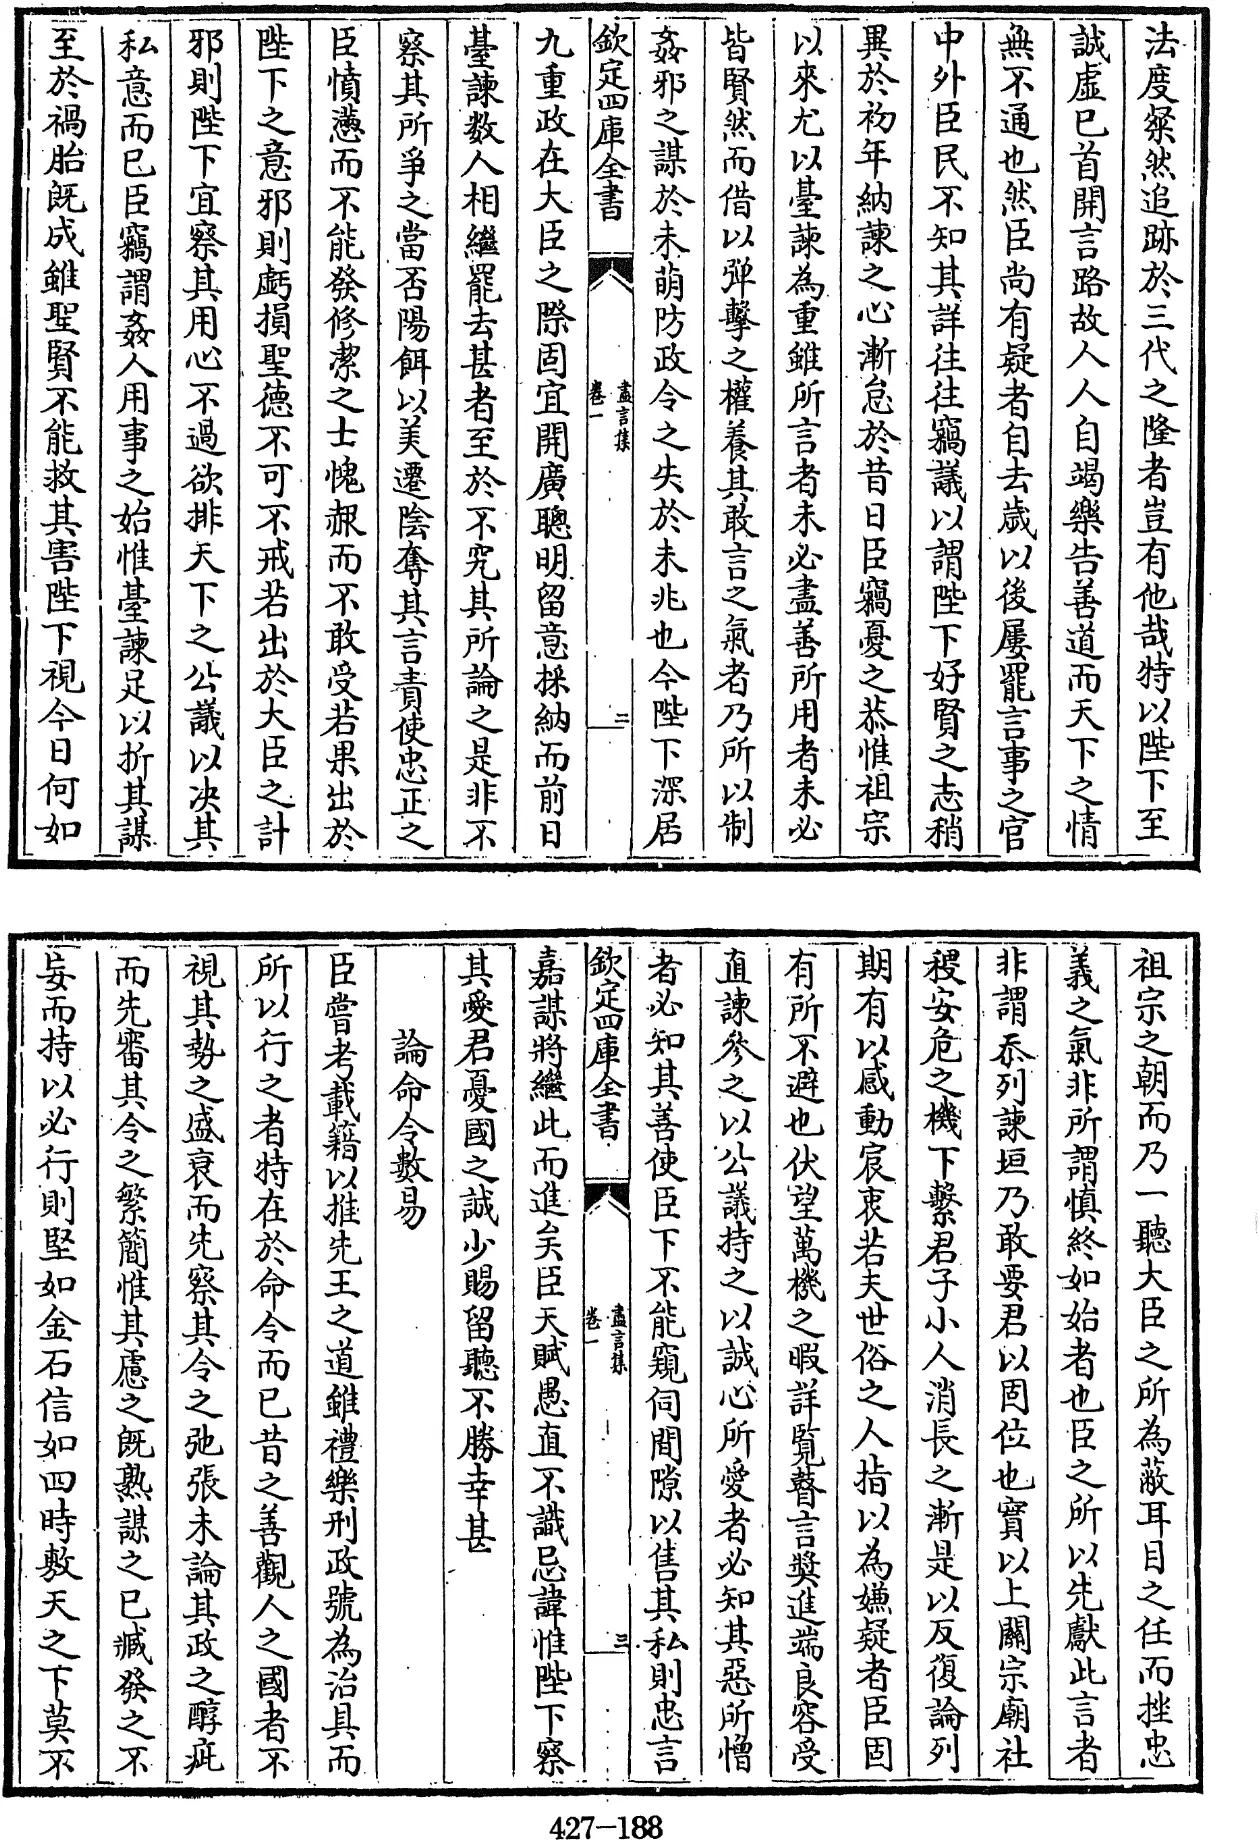 法度粲然追跡於三代之隆者豈有他哉特以陛下至
誠虛已首開言路故人人自竭樂告善道而天下之情
無不通也然臣尚有疑者自去歲以後屢罷言事之官
中外臣民不知其詳往往竊議以謂陛下好賢之志稍
異於初年納諫之心漸怠於昔日臣竊憂之恭惟祖宗
以來尤以臺諫為重雖所言者未必盡善所用者未必
皆賢然而借以彈擊之權養其敢言之氣者乃所以制
姦邪之謀於未萌防政令之失於未兆也今陛下深居
欽定四庫全書
盡言集
卷一
二
九重政在大臣之際固宜開廣聰明留意採納而前日
臺諫数人相繼罷去甚者至於不究其所論之是非不
察其所爭之當否陽餌以美遷陰奪其言責使忠正之
臣憤懣而不能發修潔之士愧赧而不敢受若果出於
陛下之意邪則虧損聖德不可不戒若出於大臣之計
邪則陛下宜察其用心不過欲排天下之公議以決其
私意而已臣竊謂姦人用事之始惟臺諫足以折其謀
至於禍胎既成雖聖賢不能救其害陛下視今日何如
祖宗之朝而乃一聽大臣之所為蔽耳目之任而挫忠
義之氣非所謂慎終如始者也臣之所以先獻此言者
非謂忝列諫垣乃敢要君以固位也實以上關宗廟社
稷安危之機下繫君子小人消長之漸是以反復論列
期有以感動宸衷若夫世俗之人指以為嫌疑者臣固
有所不避也伏望萬機之暇詳覽瞽言獎進端良容受
直諫參之以公議持之以誠心所愛者必知其惡所憎
者必知其善使臣下不能窺伺間隙以售其私則忠言
欽定四庫全書
盡言集
卷一
三
嘉謀將繼此而進矣臣天賦愚直不識忌諱惟陛下察
其愛君憂國之誠少賜留聽不勝幸甚
論命令數易
臣嘗考載籍以推先王之道雖禮樂刑政號為治具而
所以行之者特在於命令而已昔之善觀人之國者不
視其勢之盛衰而先察其令之弛張未論其政之醇疵
而先審其令之繁簡惟其慮之既熟謀之已臧發之不
妄而持以必行則堅如金石信如四時敷天之下莫不
427-188